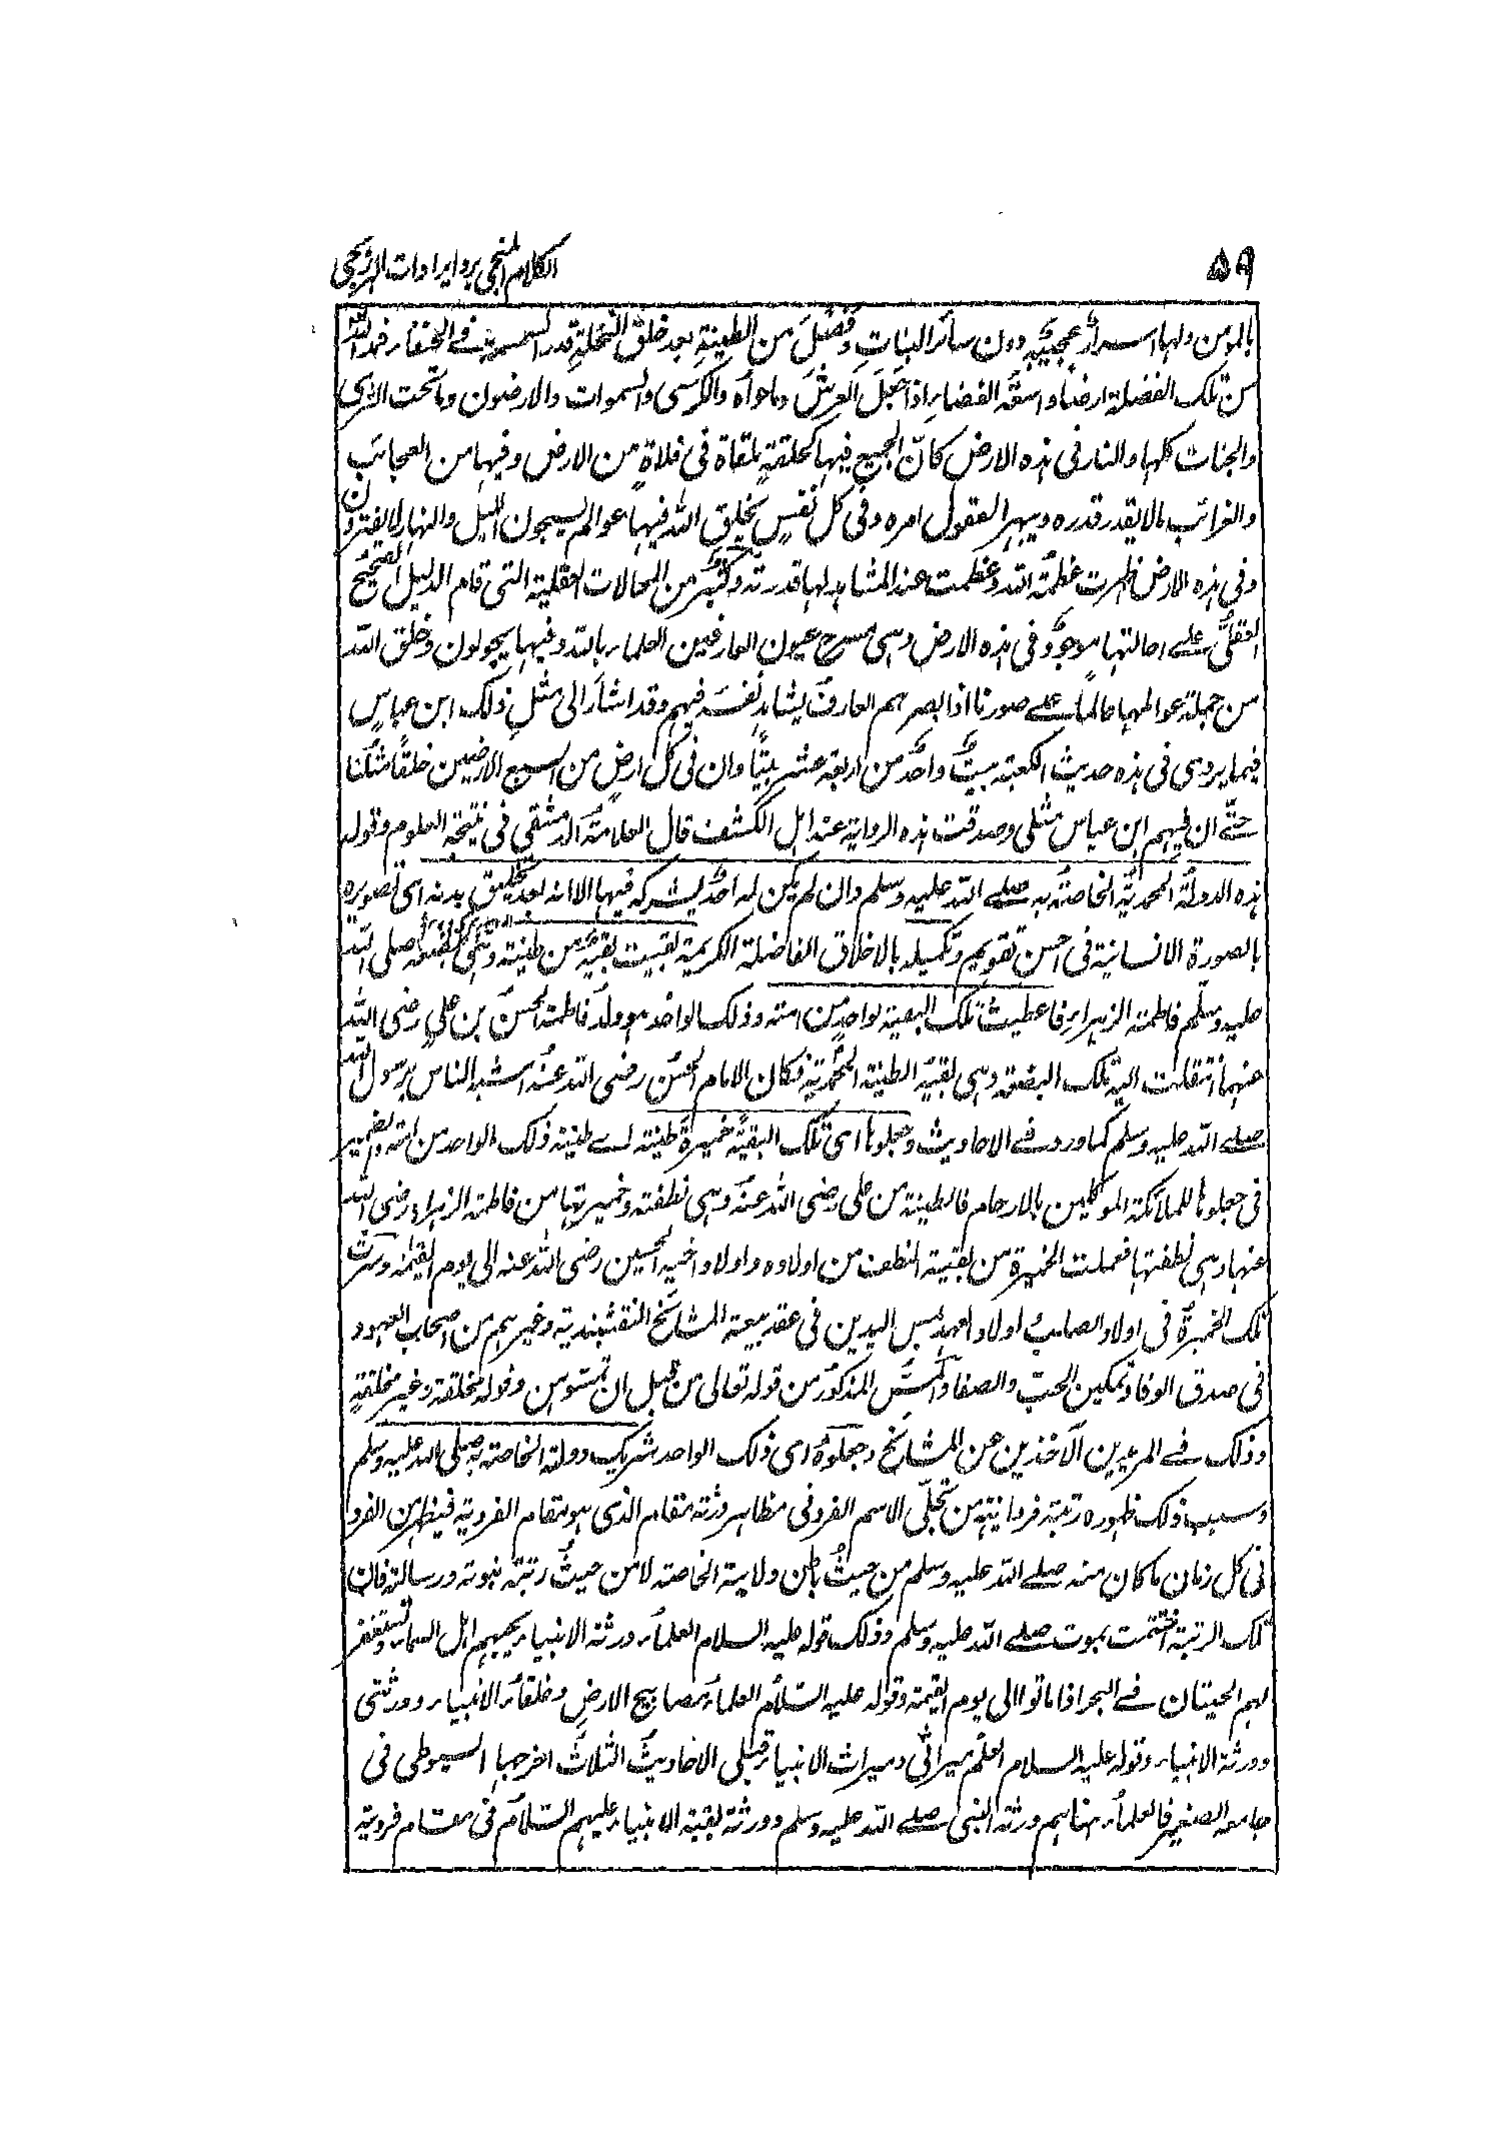 ٥٩
الكلام المنجى برد ايرادات البرزنجى
بالمؤمن ولها اسرار عجيبة دون سائر النبات وفضل من الطينة بعد خلق النخلة قدر السمسمة فے الخفاء فمد الله
من تلك الفضلة ارضا واسعة الفضاء اذا جعل العرش وما حواه والكرسى والسموات والارضون وما تحت الثرى
والجنات كلها والنار فى هذه الارض كان الجميع فيها كحلقة ملقاة فى فلاة من الارض وفيها من العجائب
والغرائب مالا يقدر قدره ويبهر العقول امره وفى كل نفس يخلق الله فيها عوالم يسبحون الليل والنهار لا يفترون
وفى هذه الارض ظهرت عظمة الله وعظمت عند المشاهد لها قدرته وكثير من المحالات العقلية التى قام الدليل الصحيح
العقلى علے احالتها موجود فى هذه الارض وهى مسرح عيون العارفين العلماء بالله وفيها يجولون وخلق الله
من جملة عوالمها عالما علے صورنا اذا ابصرهم العارف يشاهد نفسه فيهم وقد اشار الى مثل ذلك ابن عباس
فيما يروى فى هذه حديث الكعبة بيت واحد من اربعة عشر بيتا وان فى كل ارض من السبع الارضين خلقا مثلنا
حتے ان فيهم ابن عباس مثلى وصدقت هذه الرواية عند اهل الكشف قال العلامة الدمشقى فى نتيجة العلوم وقوله
هذه الدولة المحمدية الخاصة به صلے الله عليه وسلم وان لم يكن له احد يشركه فيها الا انه بعد تخليق بدنه اى تصويره
بالصورة الانسانية فى احسن تقويم وتكميله بالاخلاق الفاضلة الكريمة بقيت بقية من طينته وهى بضعته صلى الله
عليه وسلم فاطمة الزهراء فاعطيت تلك البقية لواحد من امته وذلك الواحد هو ولد فاطمة الحسن بن على رضى الله
عنهما انتقلت اليه تلك البضعة وهى بقية الطينة المحمدية فكان الامام الحسن رضى الله عنه اشبه الناس برسول الله
صلے الله عليه وسلم كما ورد فے الاحاديث وجعلوها اى تلك البقية خميرة طينته اے طينة ذلك الواحد من امته والضمير
فى جعلوها للملائكة الموكلين بالارحام فالطينة من على رضى الله عنه وهى نطفته وخميرتها من فاطمة الزهراء رضى الله
عنها وهى نطفتها فعملت الخميرة من بقية النطف من اولاده واولاد اخيه الحسين رضى الله عنه الى يوم القيمة وسرت
تلك الخميرة فى اولاد الصلب اولاد العهد لمس اليدين فى عقد بيعة المشائخ النقشبندية وغيرهم من اصحاب العهود
فى صدق الوفا وتمكين الحب والصفا والمس المذكور من قوله تعالى من قبل ان تمسوهن وقوله مخلقة وغير مخلقة
وذلك فے المريدين الآخذين عن المشائخ وجعلوه اى ذلك الواحد شريك دولته الخاصة به صلى الله عليه وسلم
وسبب ذلك ظهوره رتبة فردانيته من تجلى الاسم الفرد فى مظاهر ورثته مقام الذى هو مقام الفردية فيظهر من الفرد
فى كل زمان ما كان منه صلے الله عليه وسلم من حيث باطن ولايته الخاصة لا من حيث رتبة نبوته ورسالته فان
تلك الرتبة اختتمت بموت صلے الله عليه وسلم وذلك قوله عليه السلام العلماء ورثة الانبياء يحبهم اهل السماء وتستغفر
لهم الحيتان فے البحر اذا ماتوا الى يوم القيمة وقوله عليه السلام العلماء مصابيح الارض وخلفاء الانبياء وورثتى
وورثة الانبياء وقوله عليه السلام العلم ميراثى وميراث الانبياء قبلى الاحاديث الثلاث اخرجها السيوطى فى
جامعه الصغير فالعلماء هنا هم ورثة النبى صلے الله عليه وسلم وورثة بقية الانبياء عليهم السلام فى مقام فردية